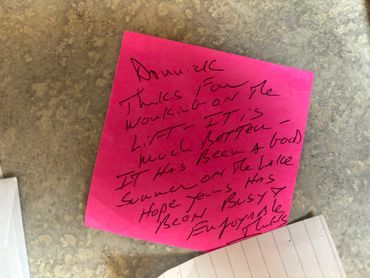 Dominick
Thnks For
Working on the
Lift - It is
much Better -
It Has Been a Good
Summer on the Lake
Hope yours Has
Been Busy &
Enjoyable
Thnks